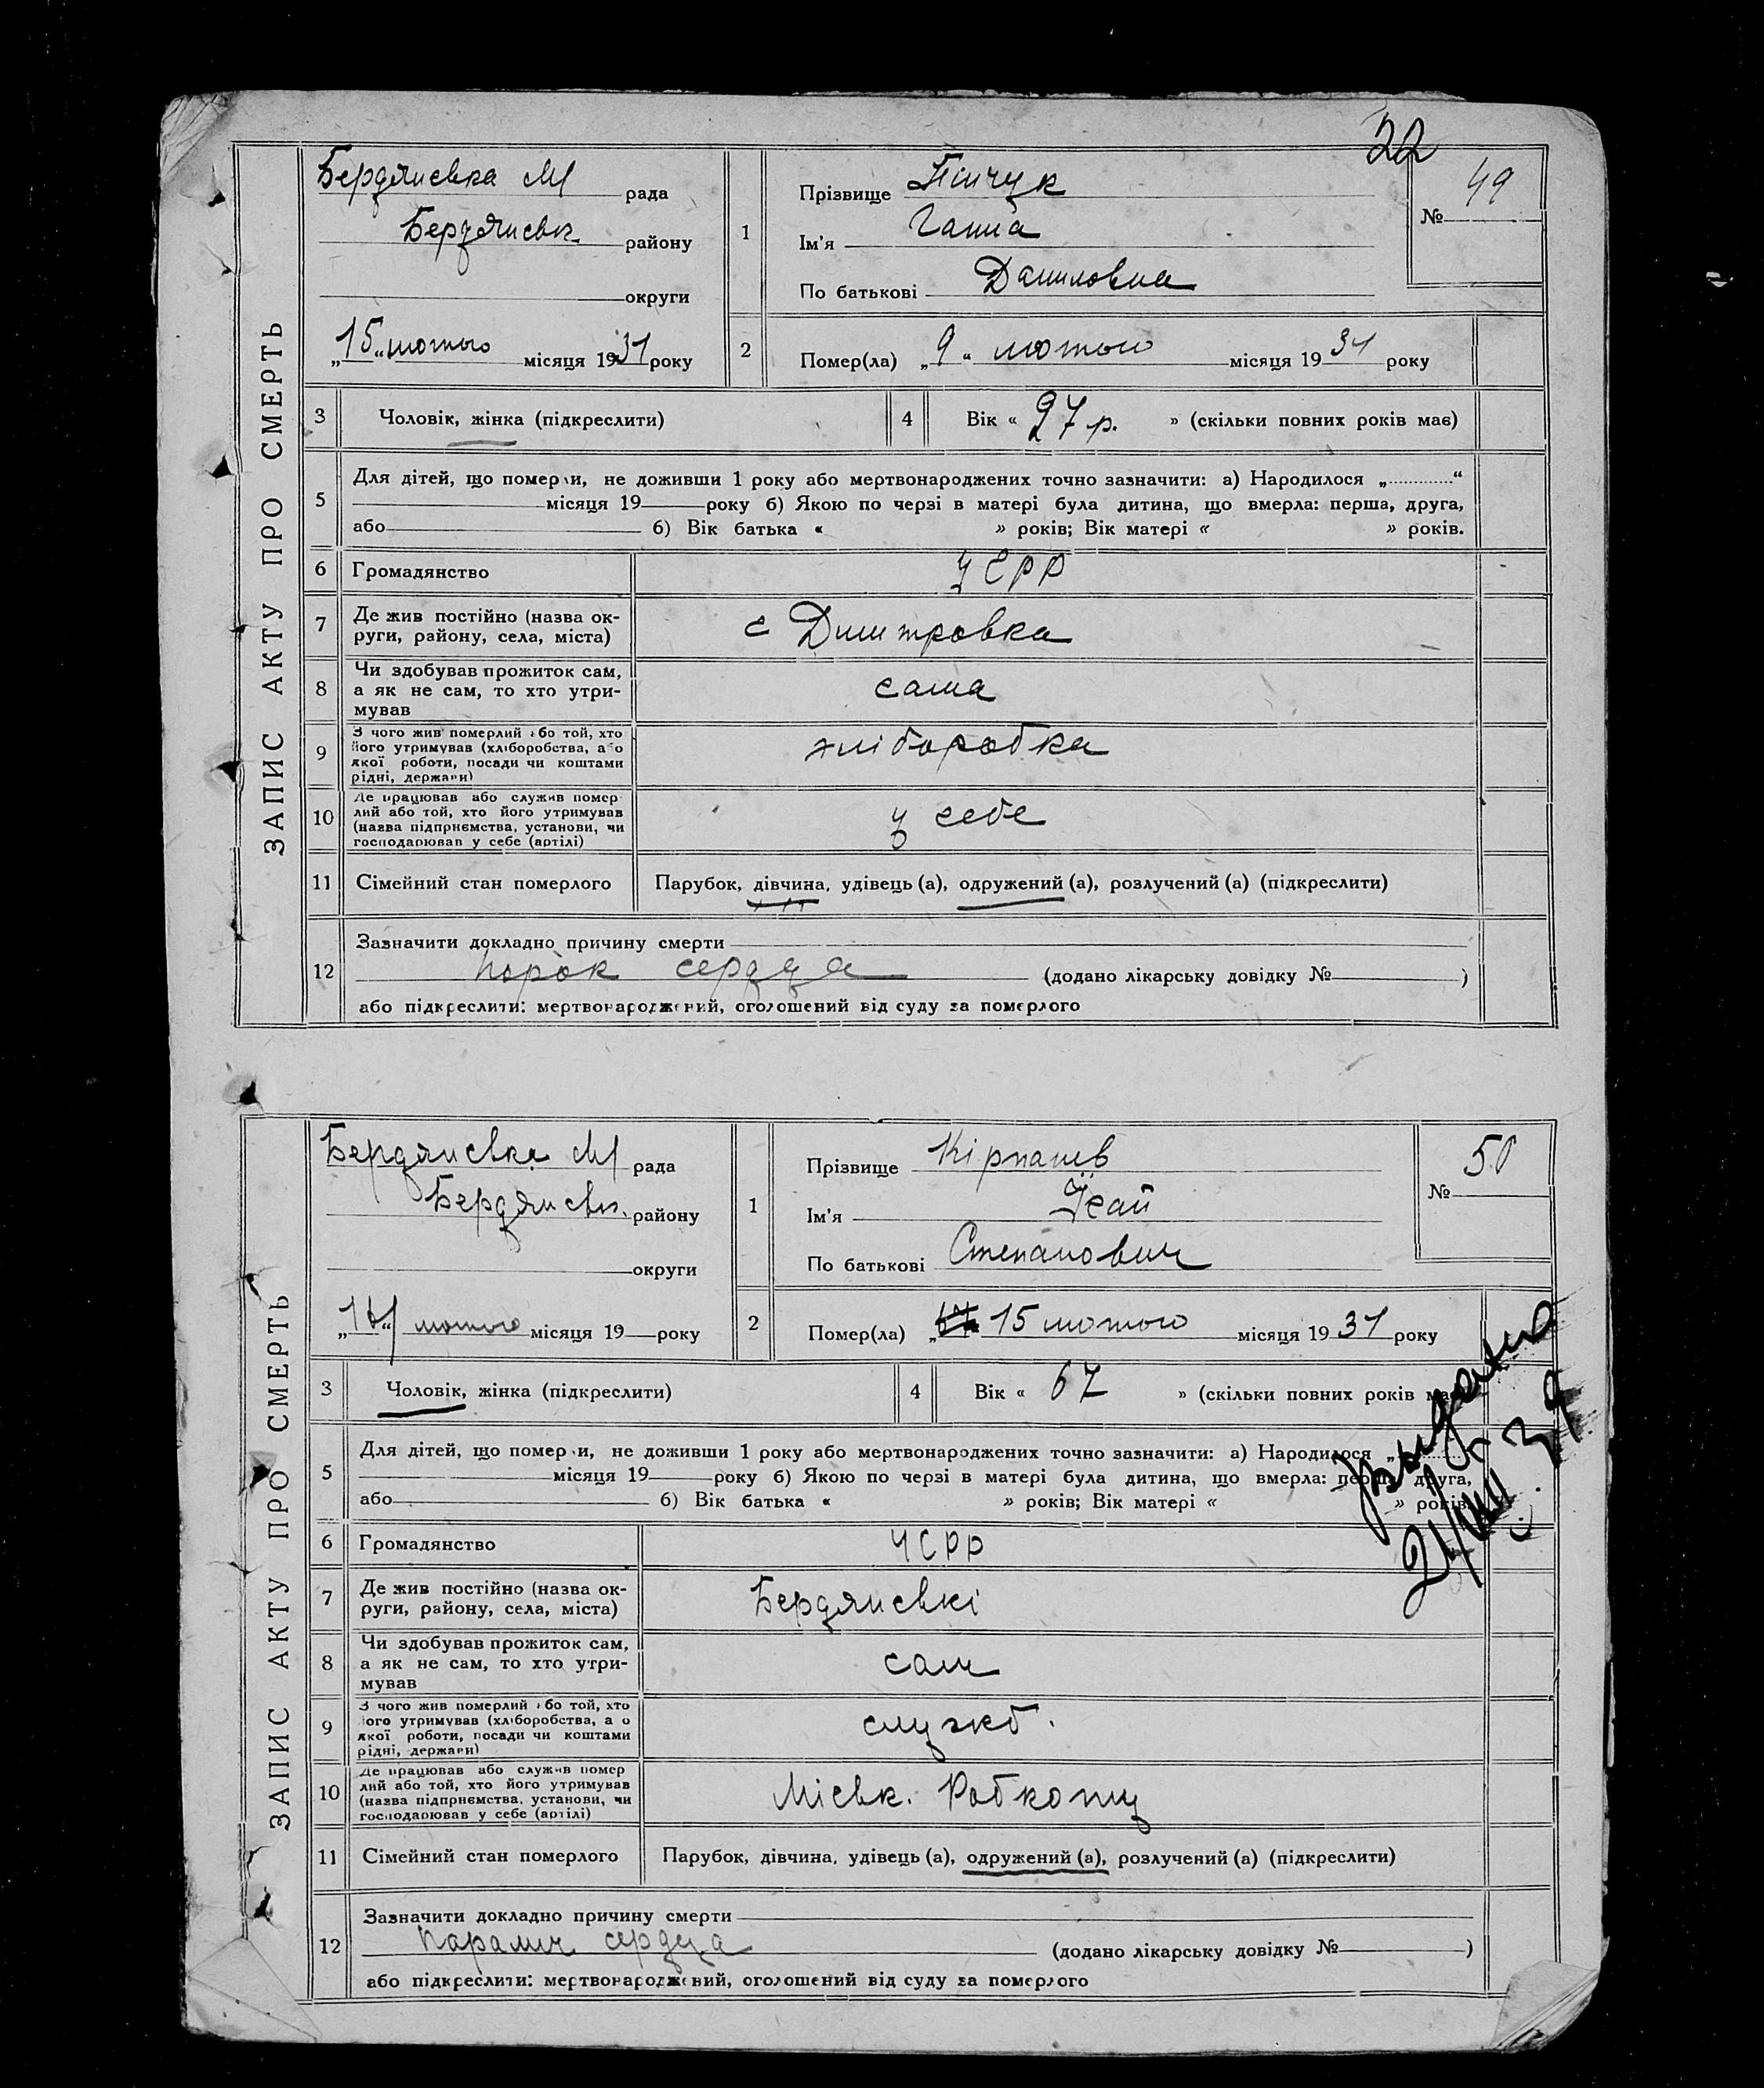 22
ЗАПИС АКТУ ПРО СМЕРТЬ
Бердянська М/ рада
Бердянськ. району
округи
„15“ лютого місяця 1931 року
1
Прізвище Пінчук
Ім'я Ганна
По батькові Даниловна
№ 49
2
Помер(ла) „9“ лютого місяця 1931 року
3 Чоловік, жінка (підкреслити)
4 Вік « 27 р. » (скільки повних років має)
5
Для дітей, що померли, не доживши 1 року або мертвонароджених точно зазначити: а) Народилося „ “
місяця 19 року б) Якою по черзі в матері була дитина, що вмерла: перша, друга,
або б) Вік батька « » років; Вік матері « » років.
6 Громадянство УСРР
7 Де жив постійно (назва ок-
руги, району, села, міста)
с Дмитровка
8 Чи здобував прожиток сам,
а як не сам, то хто утри-
мував
сама
9 З чого жив померлий або той, хто
його утримував (хліборобства, або
якої роботи, посади чи коштами
рідні, держави)
хліборобка
10 Де працював або служив помер
лий або той, хто його утримував
(назва підприємства, установи, чи
господарював у себе (артілі)
у себе
11 Сімейний стан померлого Парубок, дівчина, удівець (а), одружений (а), розлучений (а) (підкреслити)
12
Зазначити докладно причину смерти
порок сердца (додано лікарську довідку № )
або підкреслити: мертвонароджений, оголошений від суду за померлого
ЗАПИС АКТУ ПРО СМЕРТЬ
Бердянська М/ рада
Бердянськ. району
округи
лютого місяця 19 року
1
Прізвище Кірпачев
Ім'я Ісай
По батькові Степанович
№ 50
2
Помер(ла) „ 15 лютого місяця 1931 року
3 Чоловік, жінка (підкреслити)
4 Вік « 67 » (скільки повних років має)
5
Для дітей, що померли, не доживши 1 року або мертвонароджених точно зазначити: а) Народилося „
місяця 19 року б) Якою по черзі в матері була дитина, що вмерла: перша, друга,
або б) Вік батька « » років; Вік матері « » років.
6 Громадянство УСРР
7 Де жив постійно (назва ок-
руги, району, села, міста)
Бердянські
8 Чи здобував прожиток сам,
а як не сам, то хто утри-
мував
сам
9 З чого жив померлий або той, хто
його утримував (хліборобства, або
якої роботи, посади чи коштами
рідні, держави)
служб.
10 Де працював або служив помер
лий або той, хто його утримував
(назва підприємства, установи, чи
господарював у себе (артілі)
Міськ. Робкопу
11 Сімейний стан померлого Парубок, дівчина, удівець (а), одружений (а), розлучений (а) (підкреслити)
12
Зазначити докладно причину смерти
Параліч сердца (додано лікарську довідку № )
або підкреслити: мертвонароджений, оголошений від суду за померлого